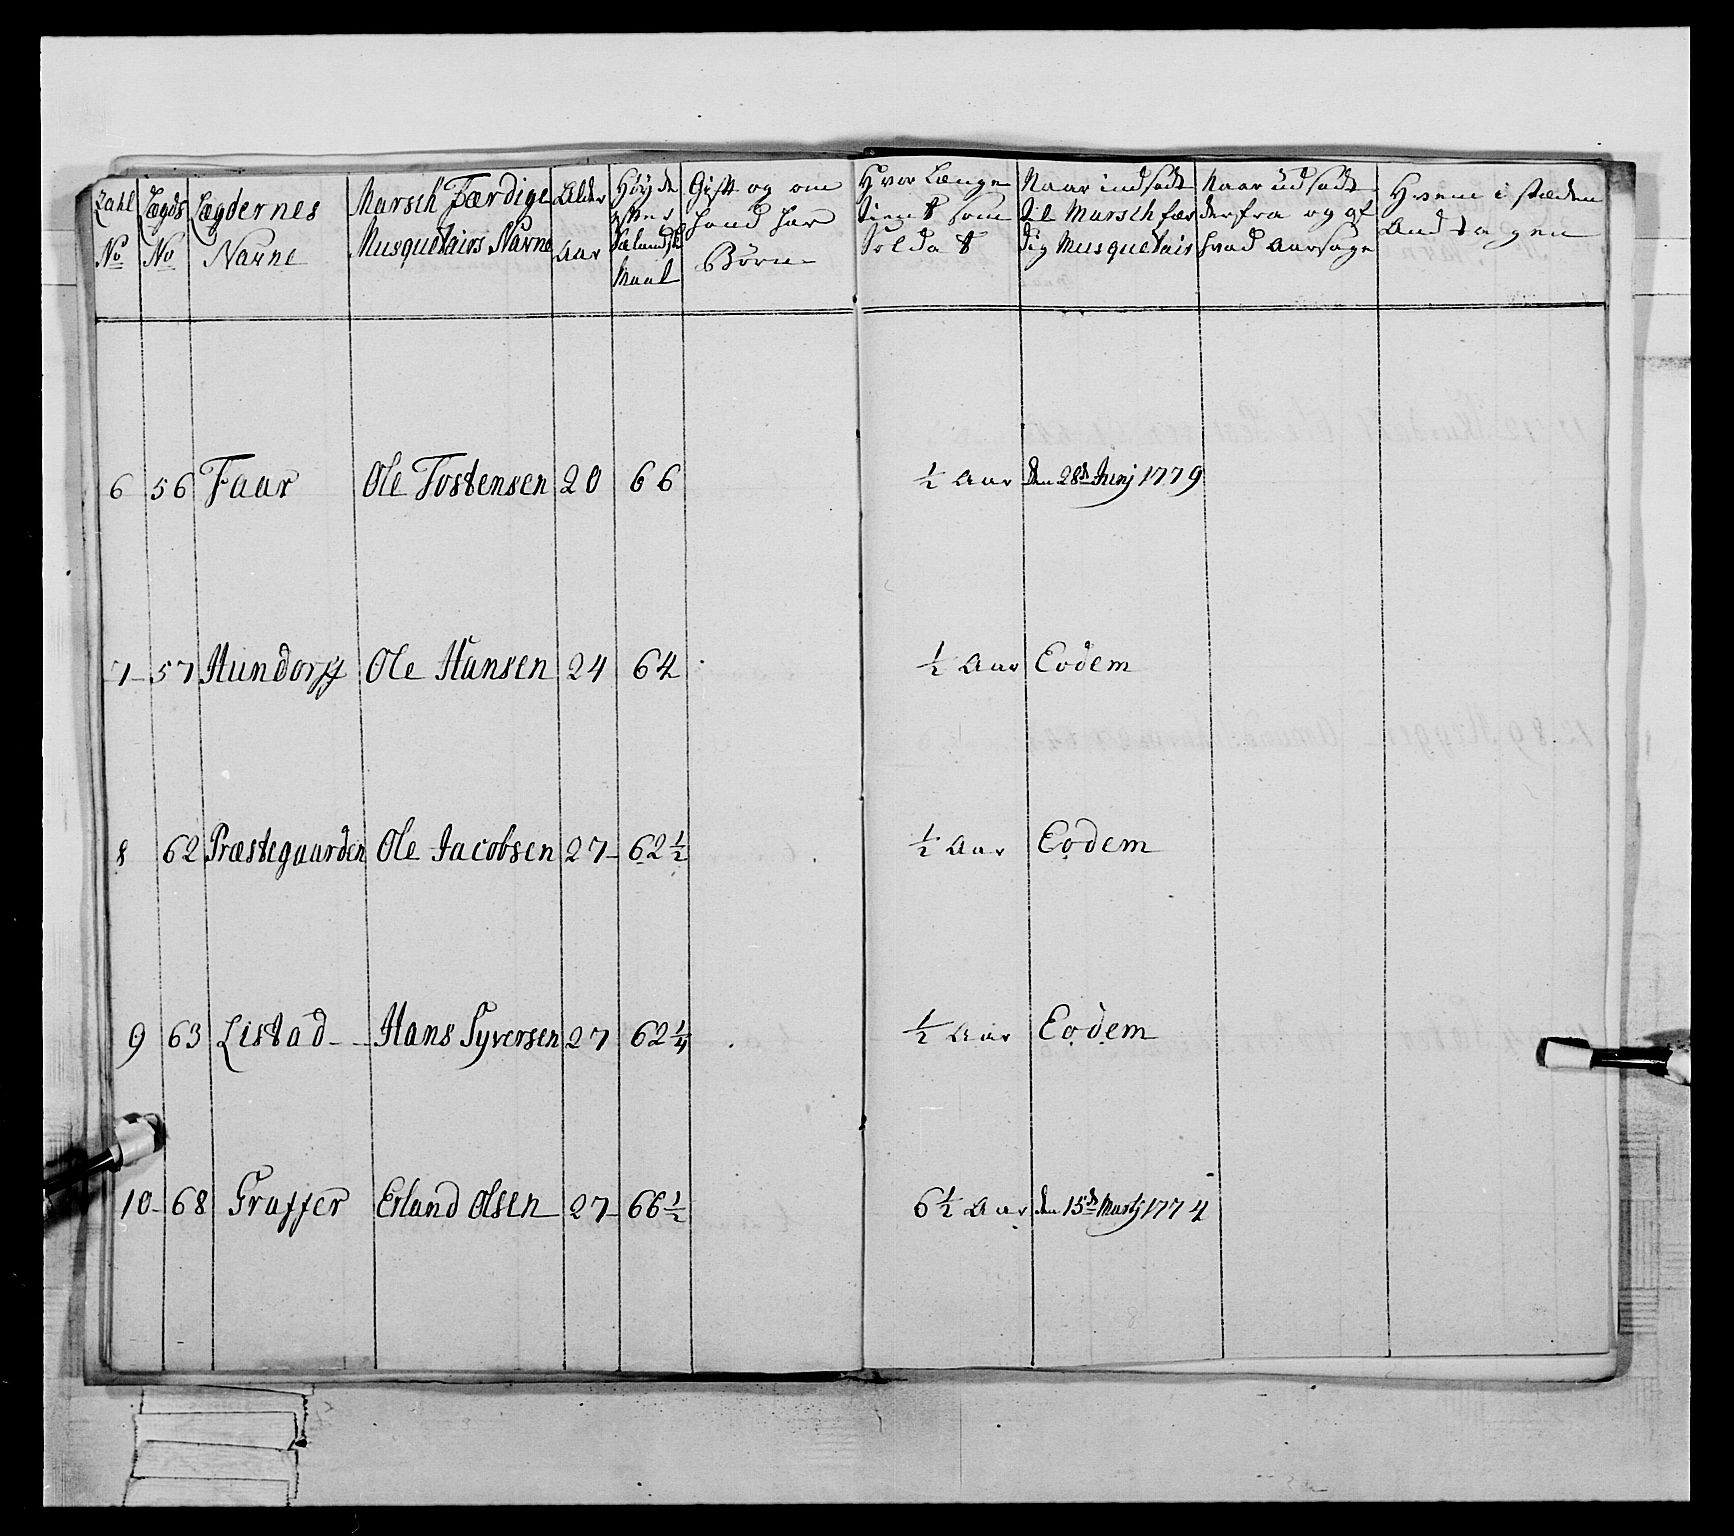 Zahl No
Lægds No
Lægdernes Navne
Marsch Færdige Musquetairs Navne
Alder Aar
Høyde efter Sælandsk Maal
Gift og om hand har Børn
Hvor Længe Tient som Soldat
Naar indsadt til Marsch fær dig Musquetair
Naar udsadt derfra og af hvad Aarsage
Hvem i stæden Andtagen
6 56 Faar Ole Tostensen 20 66 ½ Aar den 28de Junj 1779
7 57 Hundorff Ole Hansen 24 64 ½ Aar Eodem
8 62 Præstegaarden Ole Jacobsen 27 62½ ½ Aar Eodem
9 63 Listad Hans Syversen 27 62¼ ½ Aar Eodem
10 68 Fraffer Erland Olsen 27 66½ 6½ Aar den 15de Martj 1774